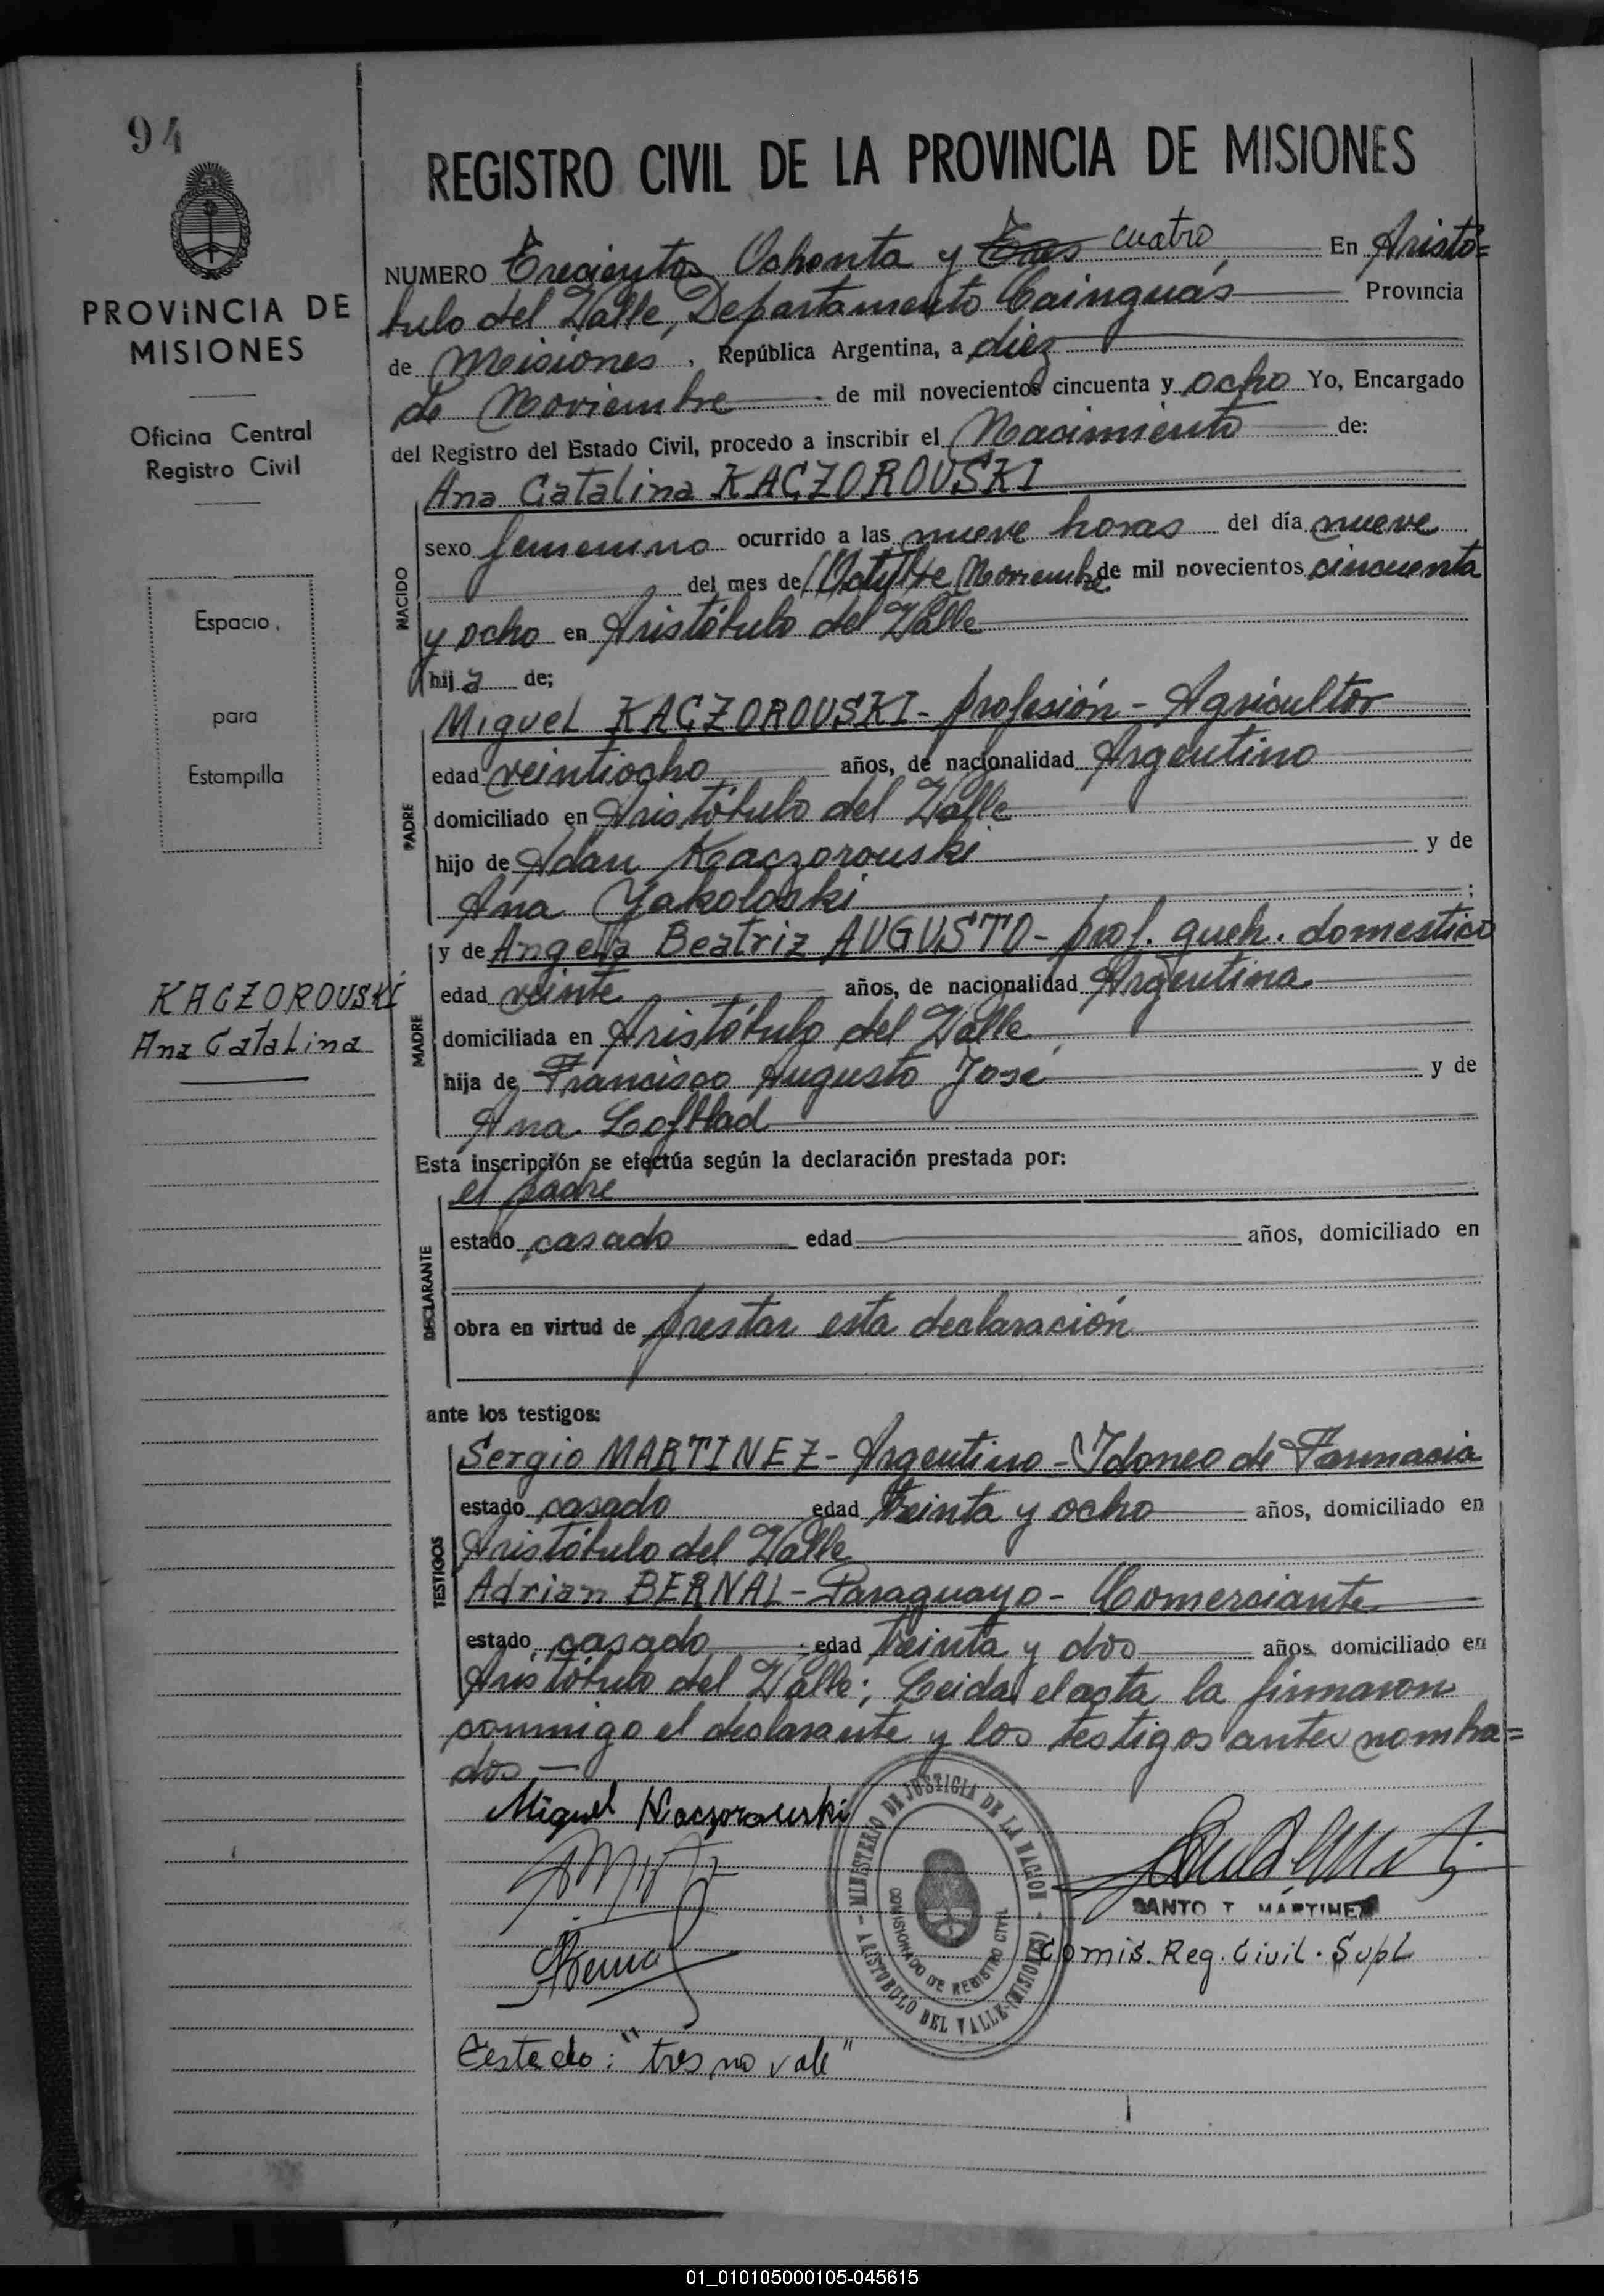 94
REGISTRO CIVIL DE LA PROVINCIA DE MISIONES
PROVINCIA DE
MISIONES
Oficina Central
Registro Civil
Espacio
para
Estampilla
KACZOROUSKI
Ana Catalina
NUMERO Trecientos Ochenta y Tres cuatro En Aristó=
bulo del Valle, Departamento Cainguás Provincia
de Meisiones, República Argentina, a diez
de Noviembre de mil novecientos cincuenta y ocho Yo, Encargado
del Registro del Estado Civil, procedo a inscribir el Nacimiento de:
NACIDO
Ana Catalina KACZOROUSKI
sexo femenino ocurrido a las nueve horas del día nueve
del mes de Octubre Noviembre de mil novecientos cincuenta
y ocho en Aristóbulo del Valle
hija de;
PADRE
Miguel KACZOROUSKI - profesión - Agricultor
edad veintiocho años, de nacionalidad Argentino
domiciliado en Aristóbulo del Valle
hijo de Adan Kaczorouski y de
Ana Yakoloski;
MADRE
y de Angela Beatriz AUGUSTO - prof. queh. domestico
edad veinte años, de nacionalidad Argentina
domiciliada en Aristóbulo del Valle
hija de Francisco Augusto José y de
Ana
Esta inscripción se efectúa según la declaración prestada por:
DECLARANTE
el padre
estado casado edad años, domiciliado en
obra en virtud de prestar esta declaración
ante los testigos:
TESTIGOS
Sergio MARTINEZ - Argentino - Idoneo de Farmacia
estado casado edad treinta y ocho años, domiciliado en
Aristóbulo del Valle
Adrian BERNAL - Paraguayo - Comerciante
estado casado edad treinta y dos años domiciliado en
Aristóbulo del Valle; Leida el acta la firmaron
conmigo el declarante y los testigos antes nombra=
dos
Miguel Kaczorouski
MINISTERIO DE JUSTICIA DE LA NACION
COMISIONADO DE REGISTRO CIVIL
ARISTOBULO DEL VALLE (MISIONES)
SANTO T. MARTINEZ
Comis. Reg. Civil. Supl
Testado: "tres no vale"
01_010105000105-045615